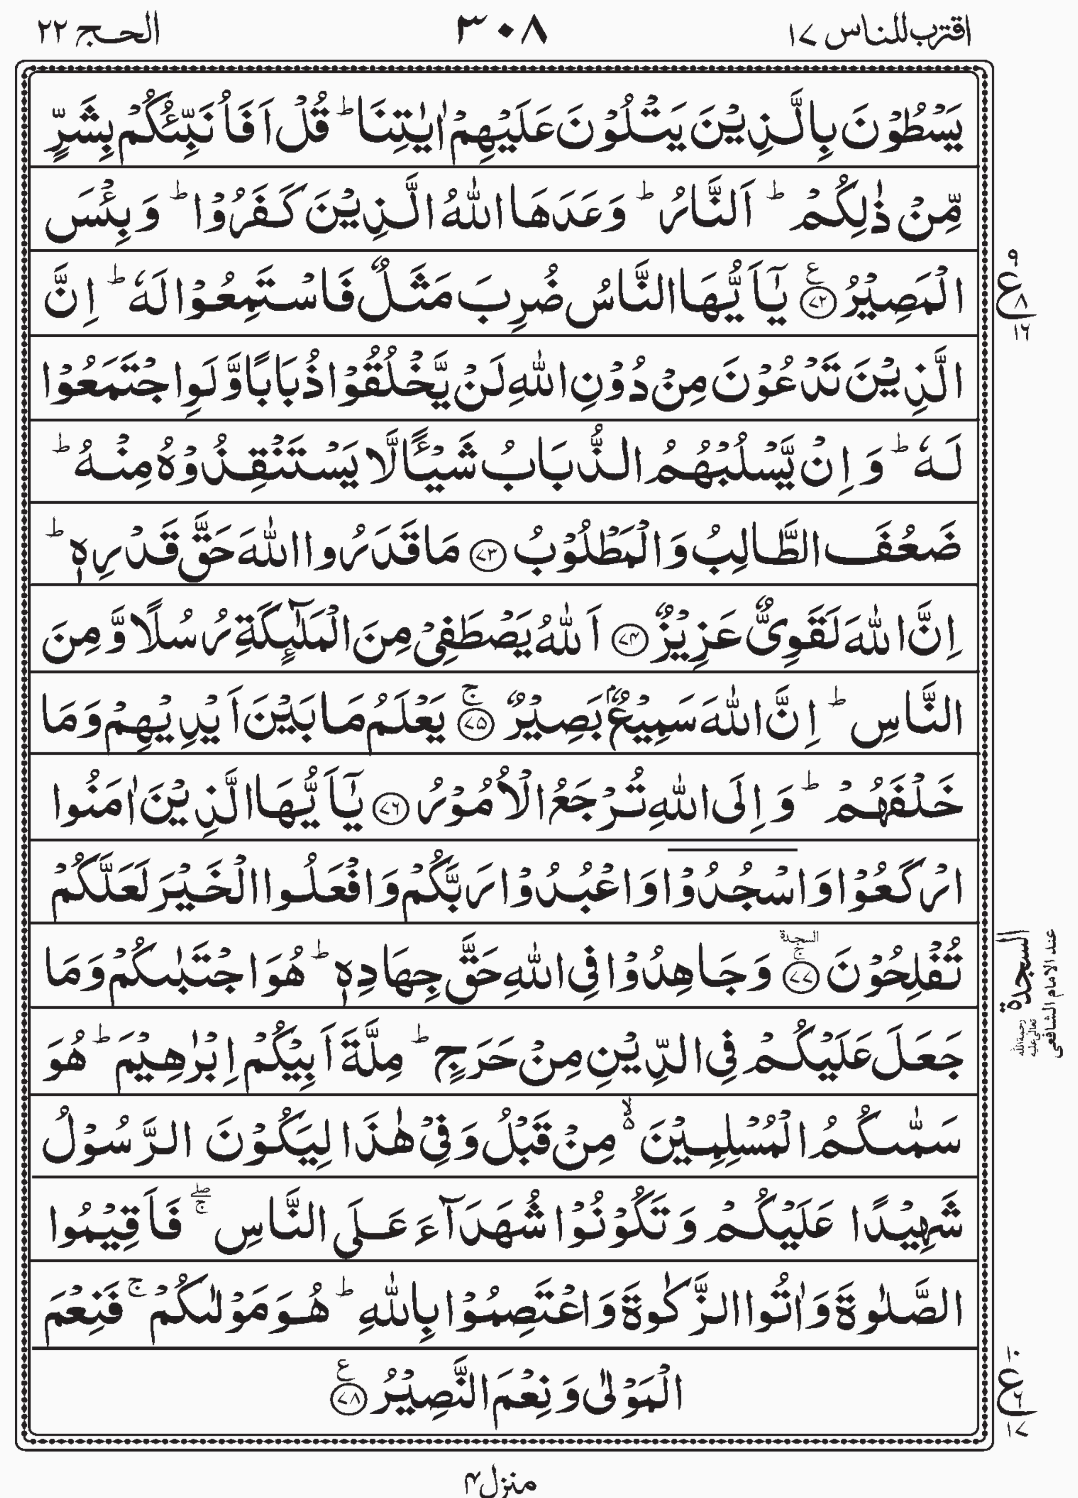 اقترب للناس ۱۷ ۳۰۸ الحج ۲۲
يَسْطُوْنَ بِالَّذِيْنَ يَتْلُوْنَ عَلَيْهِمْ اٰيٰتِنَا ؕ قُلْ اَفَاُنَبِّئُكُمْ بِشَرٍّ
مِّنْ ذٰلِكُمْ ؕ اَلنَّارُ ؕ وَعَدَهَا اللّٰهُ الَّذِيْنَ كَفَرُوْا ؕ وَبِئْسَ
الْمَصِيْرُ ﴿۷۲﴾ع يٰۤاَيُّهَا النَّاسُ ضُرِبَ مَثَلٌ فَاسْتَمِعُوْا لَهٗ ؕ اِنَّ
الَّذِيْنَ تَدْعُوْنَ مِنْ دُوْنِ اللّٰهِ لَنْ يَّخْلُقُوْا ذُبَابًا وَّلَوِ اجْتَمَعُوْا
لَهٗ ؕ وَاِنْ يَّسْلُبْهُمُ الذُّبَابُ شَيْـًٔا لَّا يَسْتَنْقِذُوْهُ مِنْهُ ؕ
ضَعُفَ الطَّالِبُ وَالْمَطْلُوْبُ ﴿۷۳﴾ مَا قَدَرُوا اللّٰهَ حَقَّ قَدْرِهٖ ؕ
اِنَّ اللّٰهَ لَقَوِىٌّ عَزِيْزٌ ﴿۷۴﴾ اَللّٰهُ يَصْطَفِىْ مِنَ الْمَلٰٓئِكَةِ رُسُلًا وَّمِنَ
النَّاسِ ؕ اِنَّ اللّٰهَ سَمِيْعٌۢ بَصِيْرٌ ﴿۷۵﴾ۚ يَعْلَمُ مَا بَيْنَ اَيْدِيْهِمْ وَمَا
خَلْفَهُمْ ؕ وَاِلَى اللّٰهِ تُرْجَعُ الْاُمُوْرُ ﴿۷۶﴾ يٰۤاَيُّهَا الَّذِيْنَ اٰمَنُوا
ارْكَعُوْا وَاسْجُدُوْا وَاعْبُدُوْا رَبَّكُمْ وَافْعَلُوا الْخَيْرَ لَعَلَّكُمْ
تُفْلِحُوْنَ ﴿۷۷﴾ۚ السجدة وَجَاهِدُوْا فِى اللّٰهِ حَقَّ جِهَادِهٖ ؕ هُوَ اجْتَبٰىكُمْ وَمَا
جَعَلَ عَلَيْكُمْ فِى الدِّيْنِ مِنْ حَرَجٍ ؕ مِلَّةَ اَبِيْكُمْ اِبْرٰهِيْمَ ؕ هُوَ
سَمّٰىكُمُ الْمُسْلِمِيْنَ ۙ۵ مِنْ قَبْلُ وَفِىْ هٰذَا لِيَكُوْنَ الرَّسُوْلُ
شَهِيْدًا عَلَيْكُمْ وَتَكُوْنُوْا شُهَدَآءَ عَلَى النَّاسِ ۖۚ فَاَقِيْمُوا
الصَّلٰوةَ وَاٰتُوا الزَّكٰوةَ وَاعْتَصِمُوْا بِاللّٰهِ ؕ هُوَ مَوْلٰىكُمْ ۚ فَنِعْمَ
الْمَوْلٰى وَنِعْمَ النَّصِيْرُ ﴿۷۸﴾ع
۹
ع
۸
۱۶
السجدة
عند الامام الشافعی
رحمۃ الله
تعالیٰ علیہ
۱۰
ع
۶
۱۷
منزل ۴